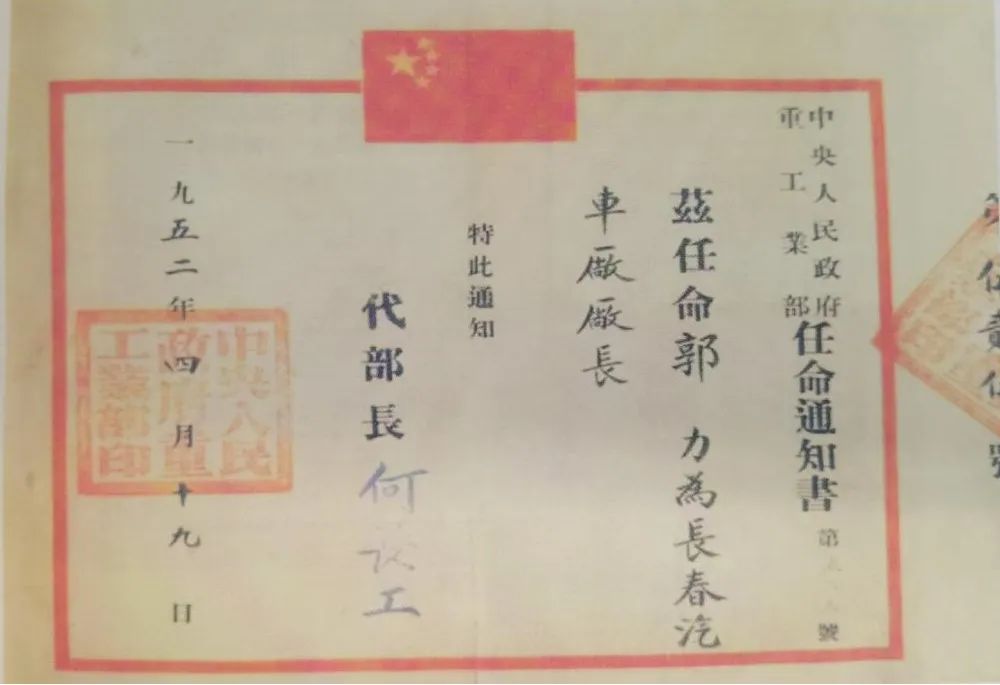 中央人民政府
重工業部
任命通知書
第
號
茲任命郭 力為長春汽
車廠廠長
特此通知
代部長 何
工
一九五二年四月十九日
中央人民
政府重
工業部印